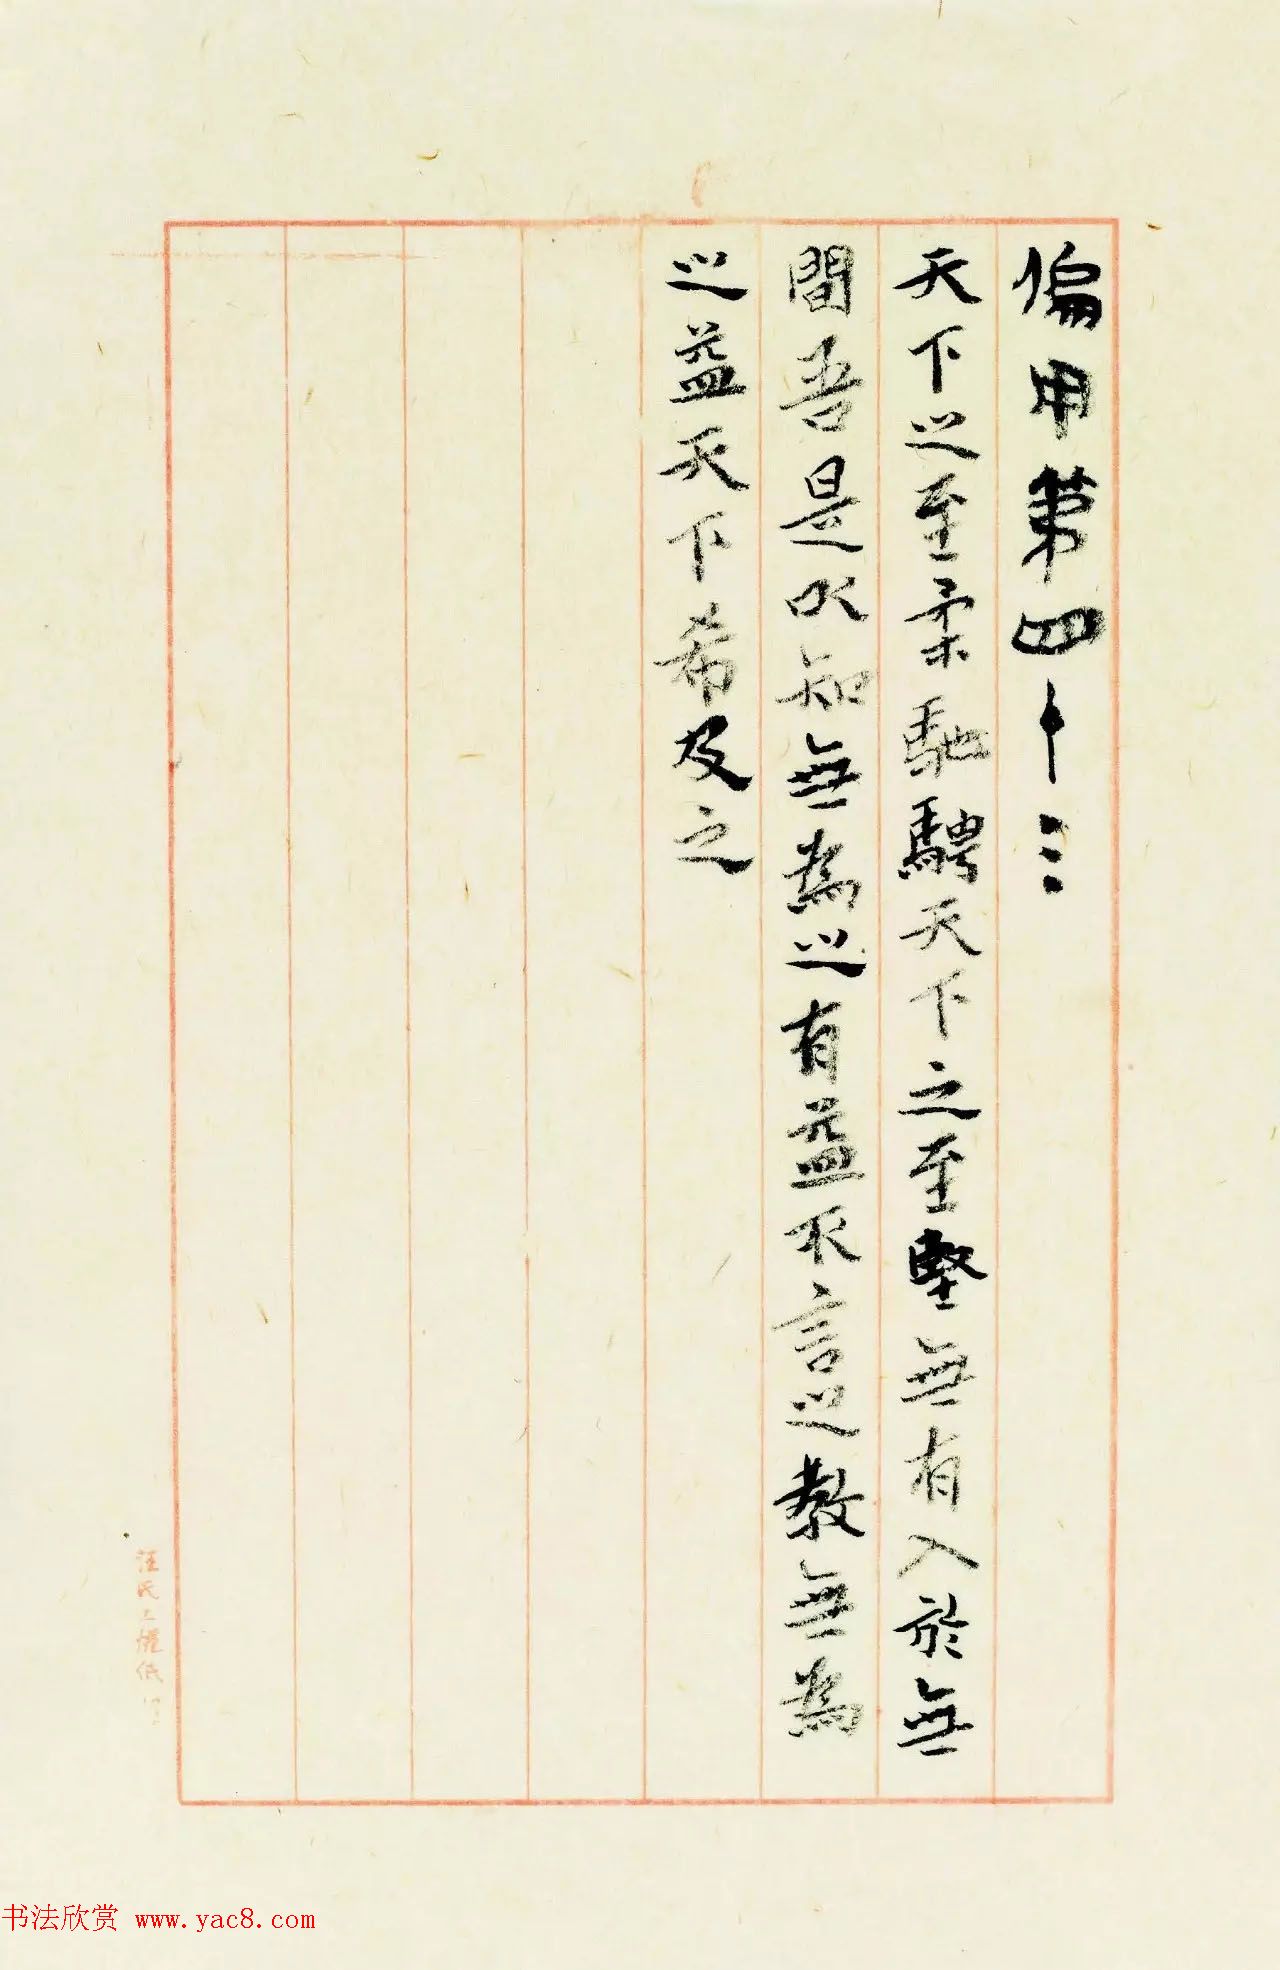 偏用第四十三
天下之至柔馳騁天下之至堅無有入於無
間吾是以知無為之有益不言之教無為
之益天下希及之
书法欣赏 www.yac8.com